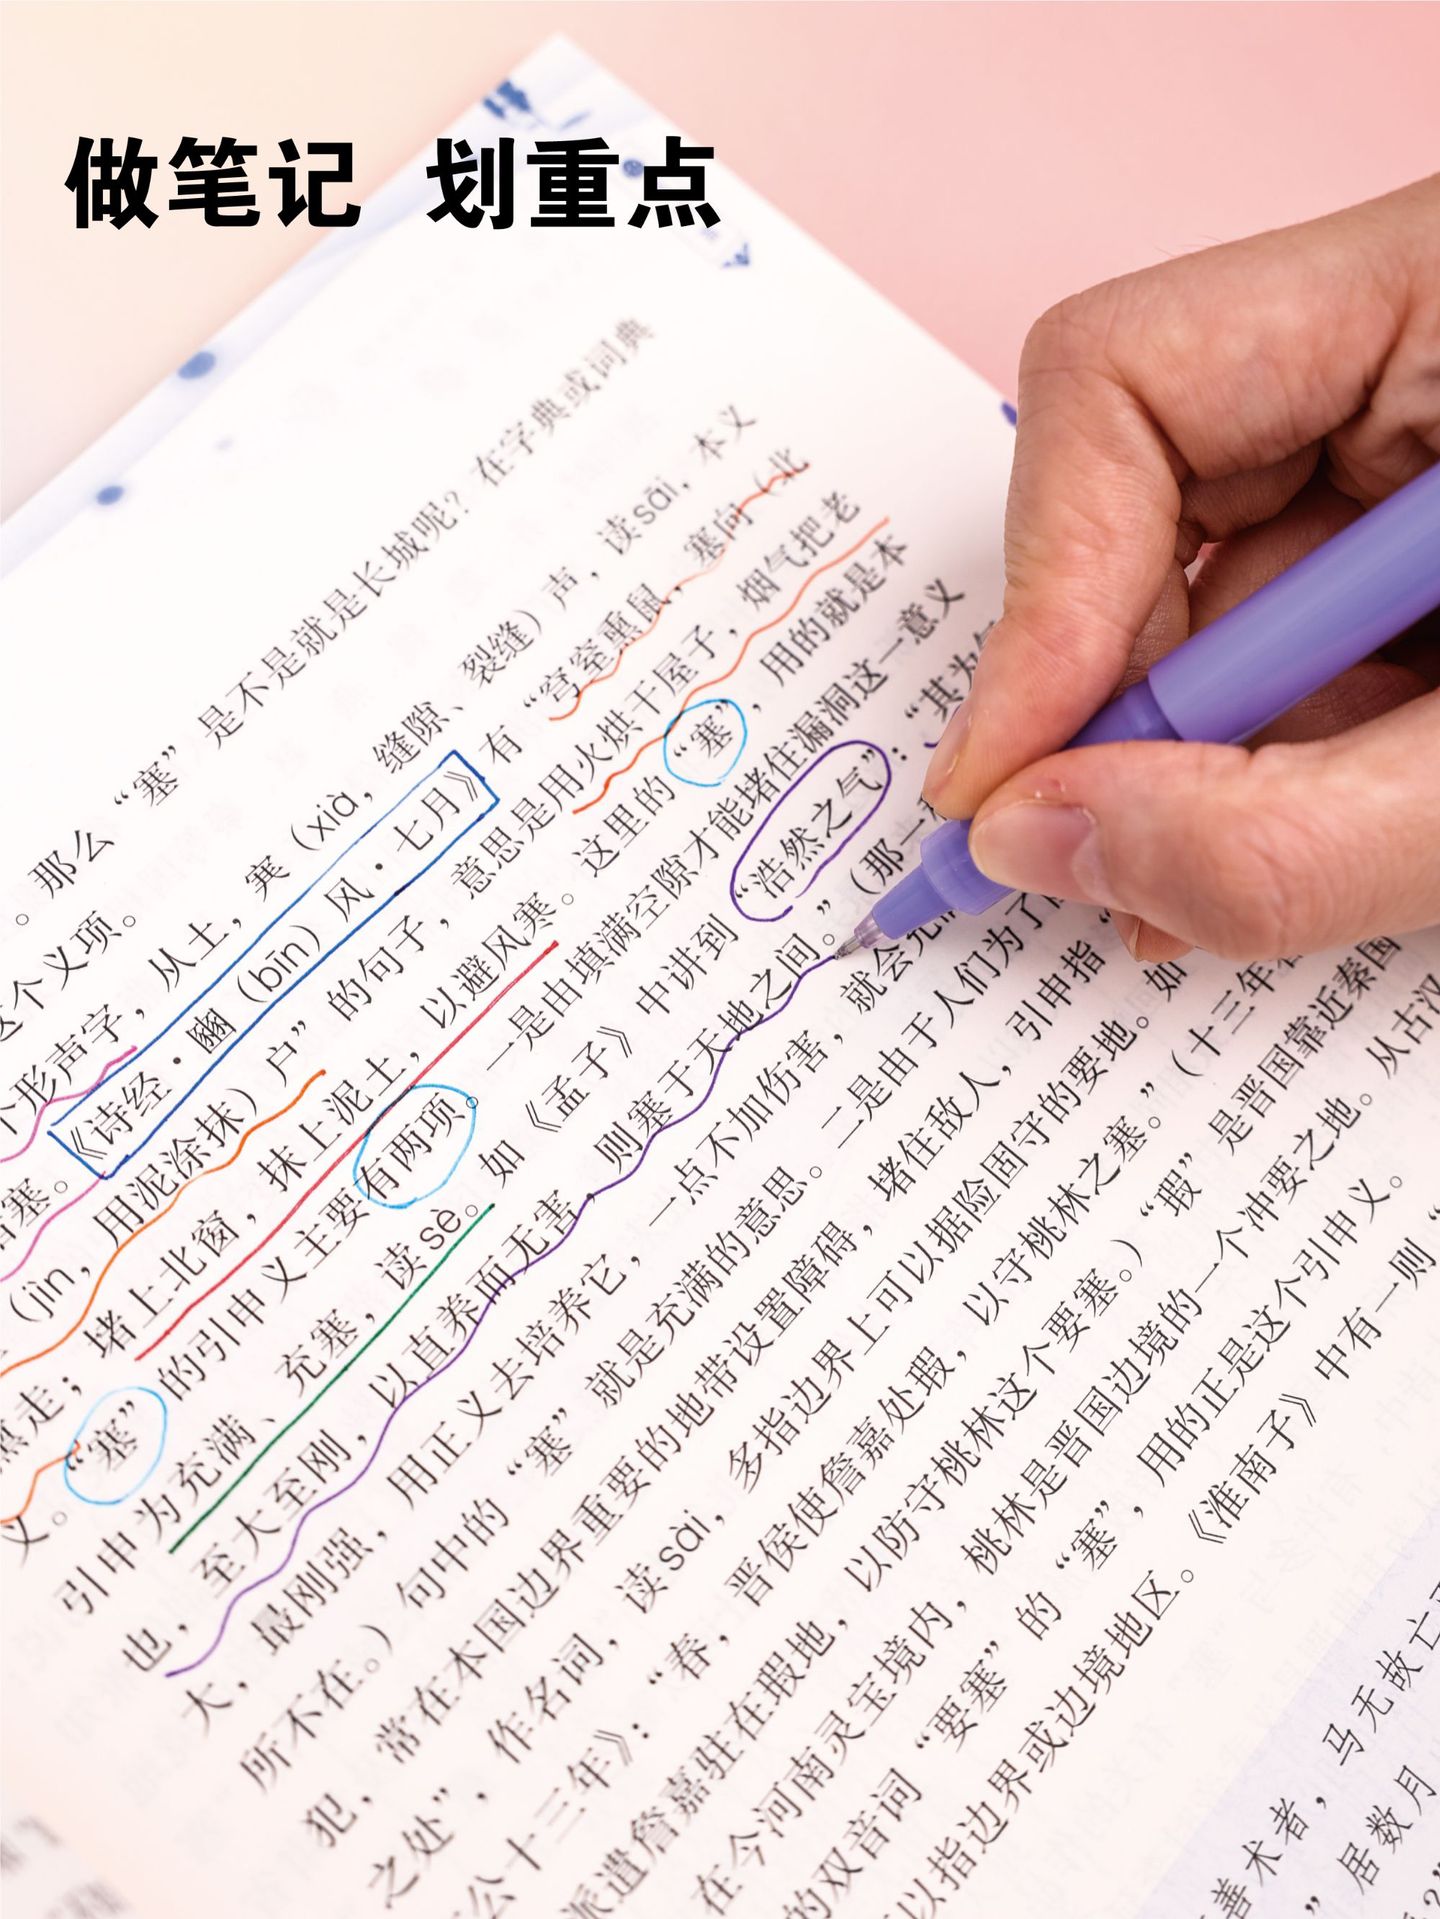 做笔记 划重点
。那么“塞”是不是就是长城呢？在字典或词典
这个义项。
个形声字，从土，寒（xià，缝隙、裂缝）声，读sāi，本义
塞。《诗经·豳（bīn）风·七月》有“穹窒熏鼠，塞向（北
（jìn，用泥涂抹）户”的句子，意思是用火烘干屋子，烟气把老
熏走；堵上北窗，抹上泥土，以避风寒。这里的“塞”，用的就是本
义。“塞”的引申义主要有两项。一是由填满空隙才能堵住漏洞这一意义
引申为充满、充塞，读sè。如《孟子》中讲到“浩然之气”：“其为气
也，至大至刚，以直养而无害，则塞于天地之间。”（那一
大，最刚强，用正义去培养它，一点不加伤害，就会充
所不在。）句中的“塞”就是充满的意思。二是由于人们为了
犯，常在本国边界重要的地带设置障碍，堵住敌人，引申指“
之处”，作名词，读sài，多指边界上可以据险固守的要地。如
公十三年》：“春，晋侯使詹嘉处瑕，以守桃林之塞。”（十三年春
派遣詹嘉驻在瑕地，以防守桃林这个要塞。）“瑕”是晋国靠近秦国
在今河南灵宝境内，桃林是晋国边境的一个冲要之地。从古汉
的双音词“要塞”的“塞”，用的正是这个引申义。
以指边界或边境地区。《淮南子》中有一则“
善术者，马无故亡
”居数月